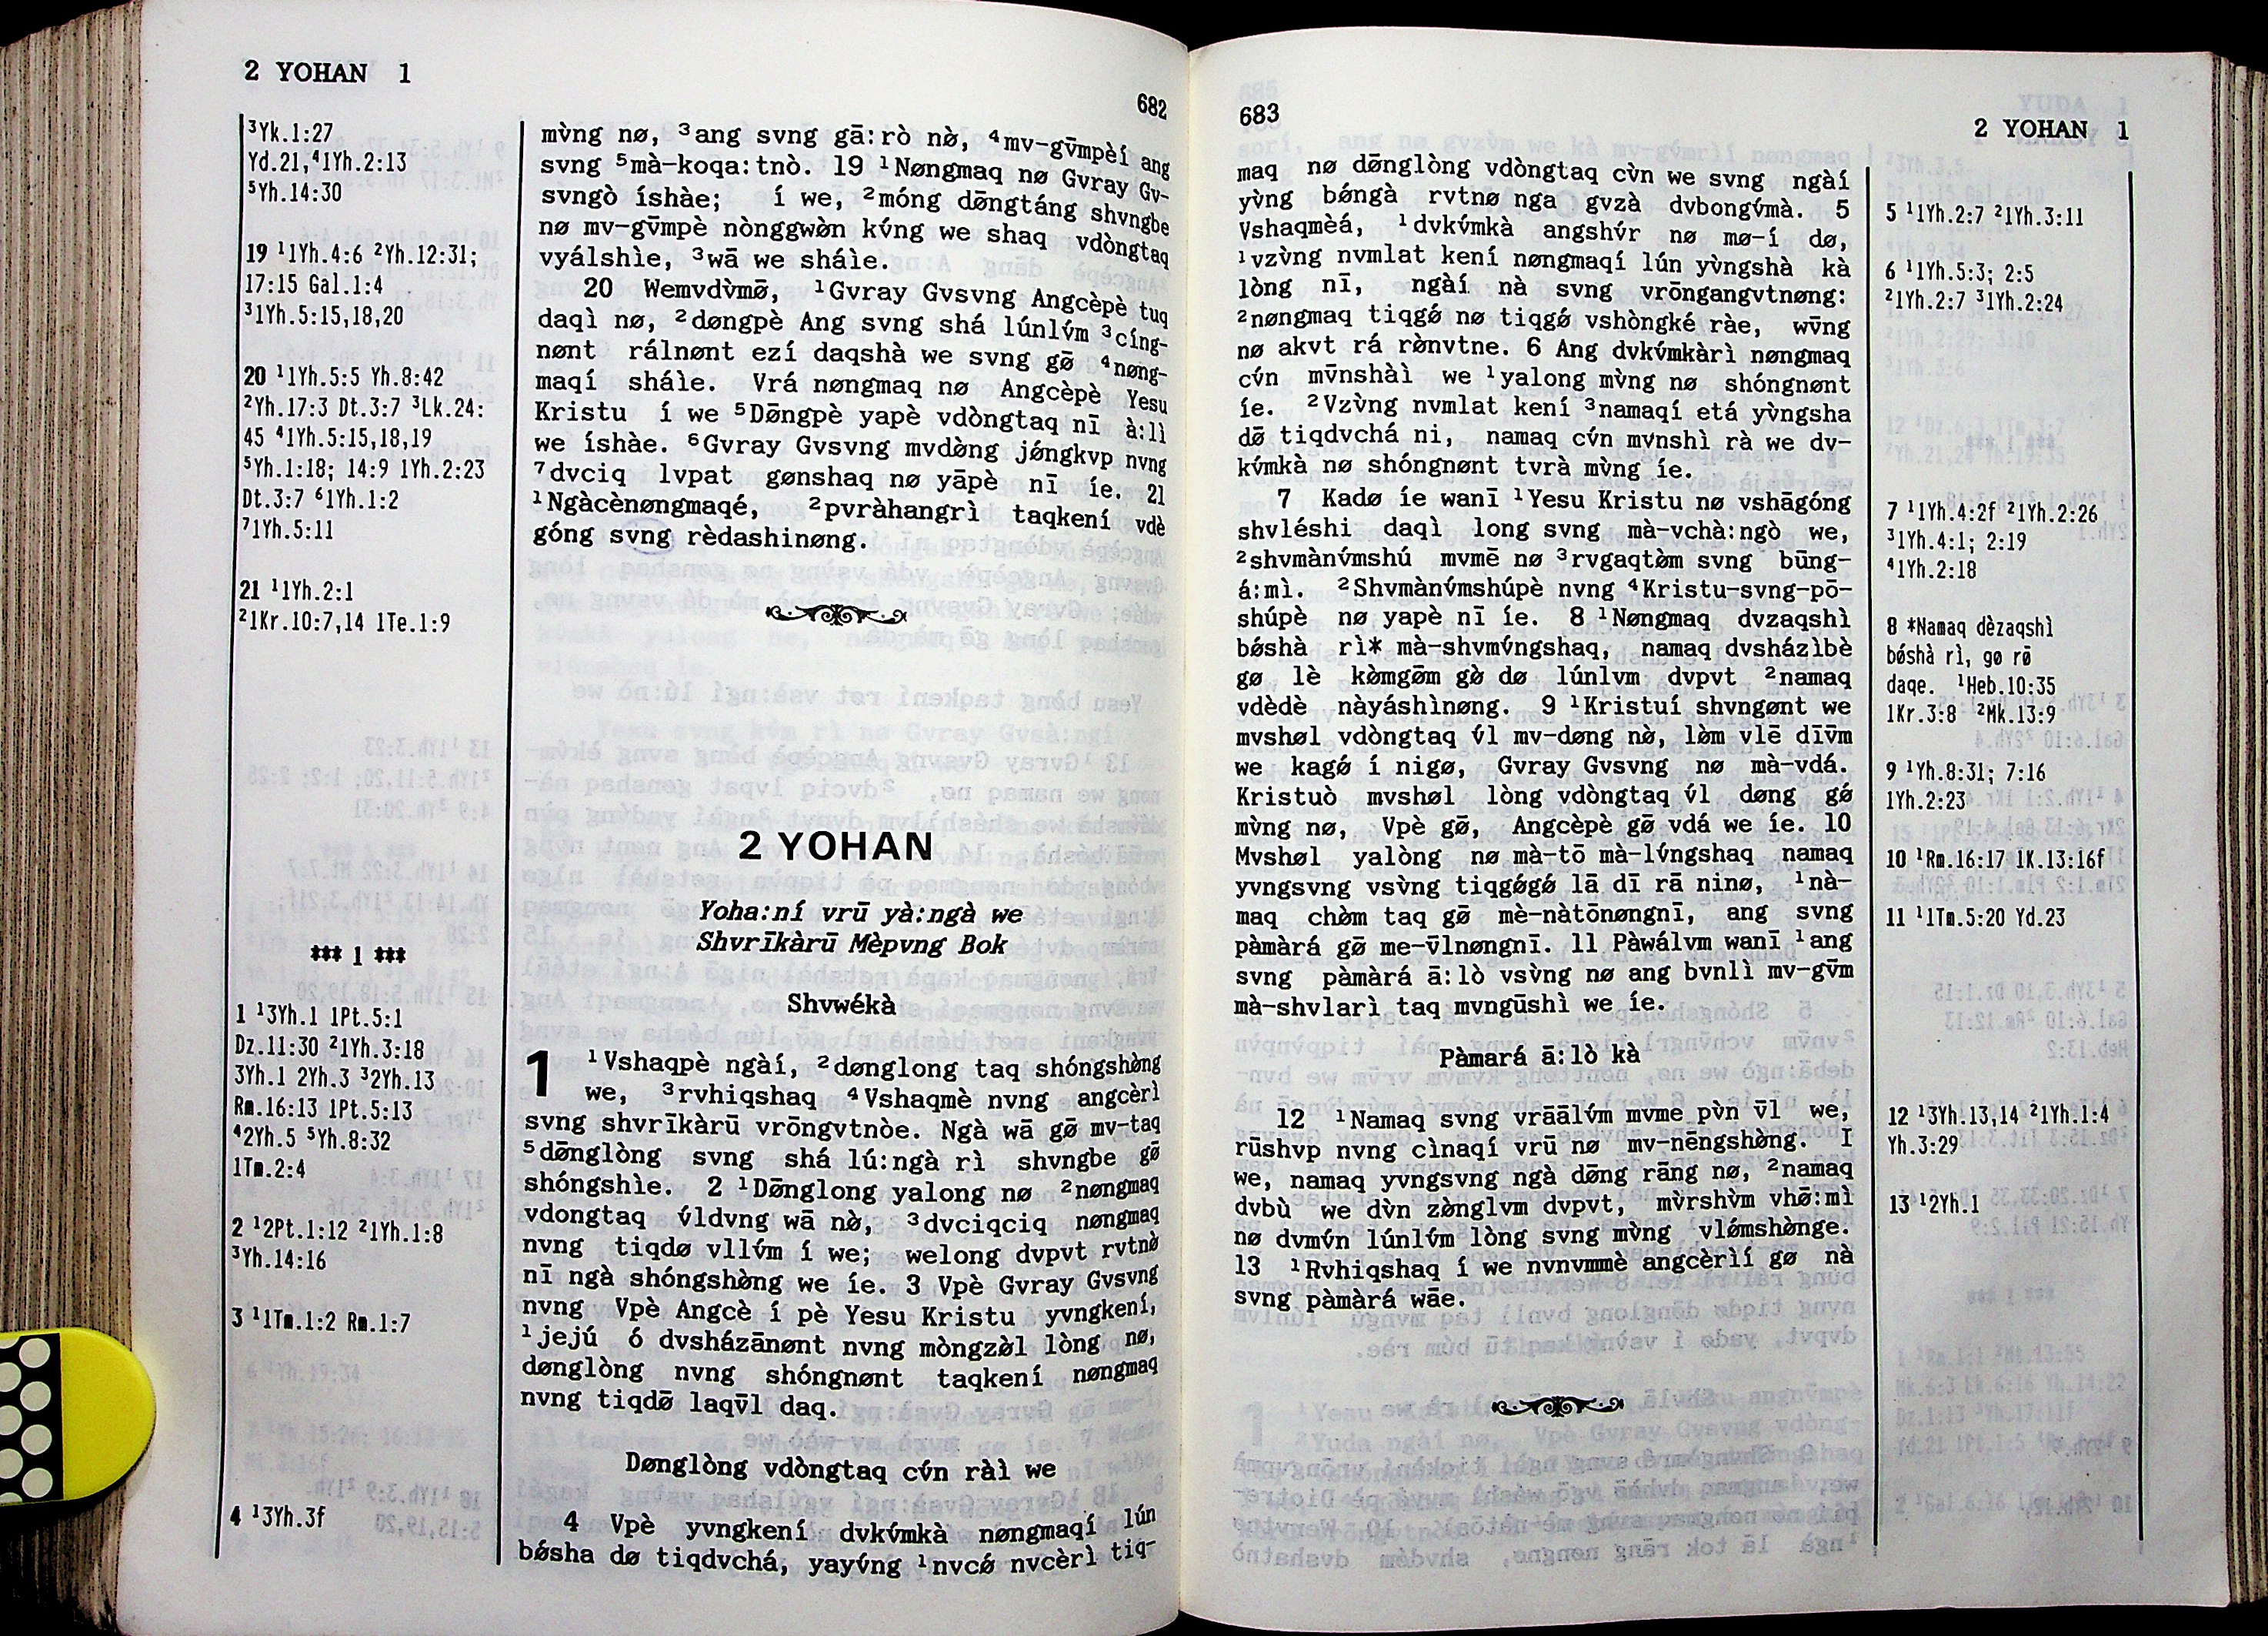 2 YOHAN 1
682
³Yk.1:27
Yd.21,⁴1Yh.2:13
⁵Yh.14:30
19 ¹1Yh.4:6 ²Yh.12:31;
17:15 Gal.1:4
³1Yh.5:15,18,20
20 ¹1Yh.5:5 Yh.8:42
²Yh.17:3 Dt.3:7 ³Lk.24:
45 ⁴1Yh.5:15,18,19
⁵Yh.1:18; 14:9 1Yh.2:23
Dt.3:7 ⁶1Yh.1:2
⁷1Yh.5:11
21 ¹1Yh.2:1
²1Kr.10:7,14 1Te.1:9
*** 1 ***
1 ¹3Yh.1 1Pt.5:1
Dz.11:30 ²1Yh.3:18
3Yh.1 2Yh.3 ³2Yh.13
Rm.16:13 1Pt.5:13
⁴2Yh.5 ⁵Yh.8:32
1Tm.2:4
2 ¹2Pt.1:12 ²1Yh.1:8
³Yh.14:16
3 ¹1Tm.1:2 Rm.1:7
4 ¹3Yh.3f
mv̀ng nø, ³ang svng gā:rò nø̀, ⁴mv-gv̄mpèí ang
svng ⁵mà-koqa:tnò. 19 ¹Nøngmaq nø Gvray Gv-
svngò íshàe; í we, ²móng dø̄ngtáng shvngbe
nø mv-gv̄mpè nònggwø̀n kv́ng we shaq vdòngtaq
vyálshìe, ³wā we sháìe.
20 Wemvdv̀mø̄, ¹Gvray Gvsvng Angcèpè tuq
daqì nø, ²døngpè Ang svng shá lúnlv́m ³cíng-
nønt rálnønt ezí daqshà we svng gø̄ ⁴nøng-
maqí sháìe. Vrá nøngmaq nø Angcèpè Yesu
Kristu í we ⁵Dø̄ngpè yapè vdòngtaq nī à:lì
we íshàe. ⁶Gvray Gvsvng mvdø̀ng jǿngkvp nvng
⁷dvciq lvpat gønshaq nø yāpè nī íe. 21
¹Ngàcènøngmaqé, ²pvràhangrì taqkení vdè
góng svng rèdashinøng.
2 YOHAN
Yoha:ní vrū yà:ngà we
Shvrīkàrū Mèpvng Bok
Shvwékà
1 ¹Vshaqpè ngàí, ²dønglong taq shóngshø̀ng
we, ³rvhiqshaq ⁴Vshaqmè nvng angcèrì
svng shvrīkàrū vrōngvtnòe. Ngà wā gø̄ mv-taq
⁵dø̄nglòng svng shá lú:ngà rì shvngbe gø̄
shóngshìe. 2 ¹Dø̄nglong yalong nø ²nøngmaq
vdongtaq v́ldvng wā nø̀, ³dvciqciq nøngmaq
nvng tiqdø vllv́m í we; welong dvpvt rvtnø̀
nī ngà shóngshø̀ng we íe. 3 Vpè Gvray Gvsvng
nvng Vpè Angcè í pè Yesu Kristu yvngkení,
¹jejú ó dvsházānønt nvng mòngzø̀l lòng nø,
dønglòng nvng shóngnønt taqkení nøngmaq
nvng tiqdø̄ laqv̄l daq.
Dønglòng vdòngtaq cv́n ràì we
4 Vpè yvngkení dvkv́mkà nøngmaqí lún
bǿsha dø tiqdvchá, yayv́ng ¹nvcǿ nvcèrì tiq-
683
2 YOHAN 1
maq nø dø̄nglòng vdòngtaq cv̀n we svng ngàí
yv̀ng bǿngà rvtnø nga gvzà dvbongv́mà. 5
Vshaqmèá, ¹dvkv́mkà angshv́r nø mø-í dø,
¹vzv̀ng nvmlat kení nøngmaqí lún yv̀ngshà kà
lòng nī, ngàí nà svng vrōngangvtnøng:
²nøngmaq tiqgǿ nø tiqgǿ vshòngké ràe, wv̄ng
nø akvt rá rø̀nvtne. 6 Ang dvkv́mkàrì nøngmaq
cv́n mv̄nshàì we ¹yalong mv̀ng nø shóngnønt
íe. ²Vzv̀ng nvmlat kení ³namaqí etá yv̀ngsha
dø̄ tiqdvchá ni, namaq cv́n mvnshì rà we dv-
kv́mkà nø shóngnønt tvrà mv̀ng íe.
7 Kadø íe wanī ¹Yesu Kristu nø vshāgóng
shvléshi daqì long svng mà-vchà:ngò we,
²shvmànv́mshú mvmē nø ³rvgaqtø̀m svng būng-
á:mì. ²Shvmànv́mshúpè nvng ⁴Kristu-svng-pō-
shúpè nø yapè nī íe. 8 ¹Nøngmaq dvzaqshì
bǿshà rì* mà-shvmv́ngshaq, namaq dvsházìbè
gø lè kø̀mgø̄m gø̀ dø lúnlvm dvpvt ²namaq
vdèdè nàyáshìnøng. 9 ¹Kristuí shvngønt we
mvshøl vdòngtaq v́l mv-døng nø̀, lø̀m vlē dīv̄m
we kagǿ í nigø, Gvray Gvsvng nø mà-vdá.
Kristuò mvshøl lòng vdòngtaq v́l døng gǿ
mv̀ng nø, Vpè gø̄, Angcèpè gø̄ vdá we íe. 10
Mvshøl yalòng nø mà-tō mà-lv́ngshaq namaq
yvngsvng vsv̀ng tiqgǿgǿ lā dī rā ninø, ¹nà-
maq chø̀m taq gø̄ mè-nàtōnøngnī, ang svng
pàmàrá gø̄ me-v̄lnøngnī. 11 Pàwálvm wanī ¹ang
svng pàmàrá ā:lò vsv̀ng nø ang bvnlì mv-gv̄m
mà-shvlarì taq mvngūshì we íe.
Pàmará ā:lò kà
12 ¹Namaq svng vrāālv́m mvme pv̀n v̄l we,
rūshvp nvng cìnaqí vrū nø mv-nēngshø̀ng. Í
we, namaq yvngsvng ngà dø̄ng rāng nø, ²namaq
dvbù we dv̀n zø̀nglvm dvpvt, mv̀rshv̀m vhø̄:mì
nø dvmv́n lúnlv́m lòng svng mv̀ng vlǿmshø̀nge.
13 ¹Rvhiqshaq í we nvnvmmè angcèrìí gø nà
svng pàmàrá wāe.
5 ¹1Yh.2:7 ²1Yh.3:11
6 ¹1Yh.5:3; 2:5
²1Yh.2:7 ³1Yh.2:24
7 ¹1Yh.4:2f ²1Yh.2:26
³1Yh.4:1; 2:19
⁴1Yh.2:18
8 *Namaq dèzaqshì
bǿshà rì, gø rø̄
daqe. ¹Heb.10:35
1Kr.3:8 ²Mk.13:9
9 ¹Yh.8:31; 7:16
1Yh.2:23
10 ¹Rm.16:17 1K.13:16f
11 ¹1Tm.5:20 Yd.23
12 ¹3Yh.13,14 ²1Yh.1:4
Yh.3:29
13 ¹2Yh.1